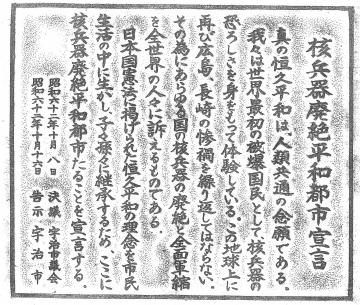 核兵器廃絶平和都市宣言
真の恒久平和は、人類共通の念願である。
我々は世界最初の被爆国民として、核兵器の
恐ろしさを身をもって体験している。この地球上に
再び広島、長崎の惨禍を繰り返してはならない。
その為にあらゆる国の核兵器の廃絶と全面軍縮
を全世界の人々に訴えるものである。
日本国憲法に掲げられた恒久平和の理念を市民
生活の中に生かし、子々孫々に継承するため、ここに
核兵器廃絶平和都市たることを宣言する。
昭和六十二年十月 八日 決議 宇治市議会
昭和六十二年十月十六日 告示 宇治市